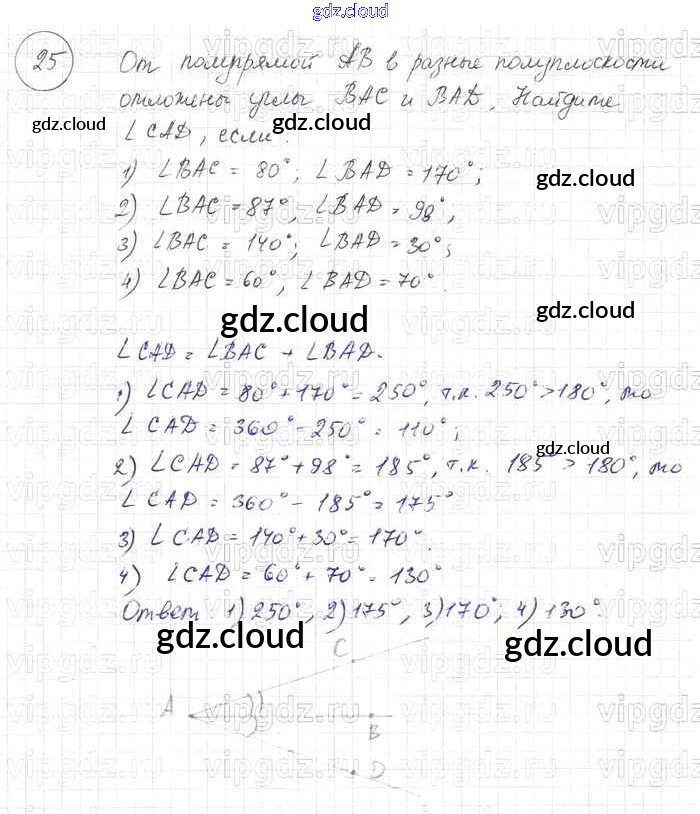 gdz.cloud
25 От полупрямой AB в разные полуплоскости
отложены углы BAC и BAD. Найдите
gdz.cloud gdz.cloud
∠CAD, если:
1) ∠BAC = 80°; ∠BAD = 170°;
gdz.cloud
2) ∠BAC = 87°, ∠BAD = 98°,
3) ∠BAC = 140°; ∠BAD = 30°;
4) ∠BAC = 60°, ∠BAD = 70°.
gdz.cloud gdz.cloud
∠CAD = ∠BAC + ∠BAD.
1) ∠CAD = 80° + 170° = 250°, т.к. 250° > 180°, то
∠CAD = 360° - 250° = 110°;
gdz.cloud
2) ∠CAD = 87° + 98° = 185°, т.к. 185° > 180°, то
∠CAD = 360° - 185° = 175°
3) ∠CAD = 140° + 30° = 170°.
4) ∠CAD = 60° + 70° = 130°
Ответ: 1) 250°, 2) 175°, 3) 170°; 4) 130°.
gdz.cloud gdz.cloud
C
A
B
D